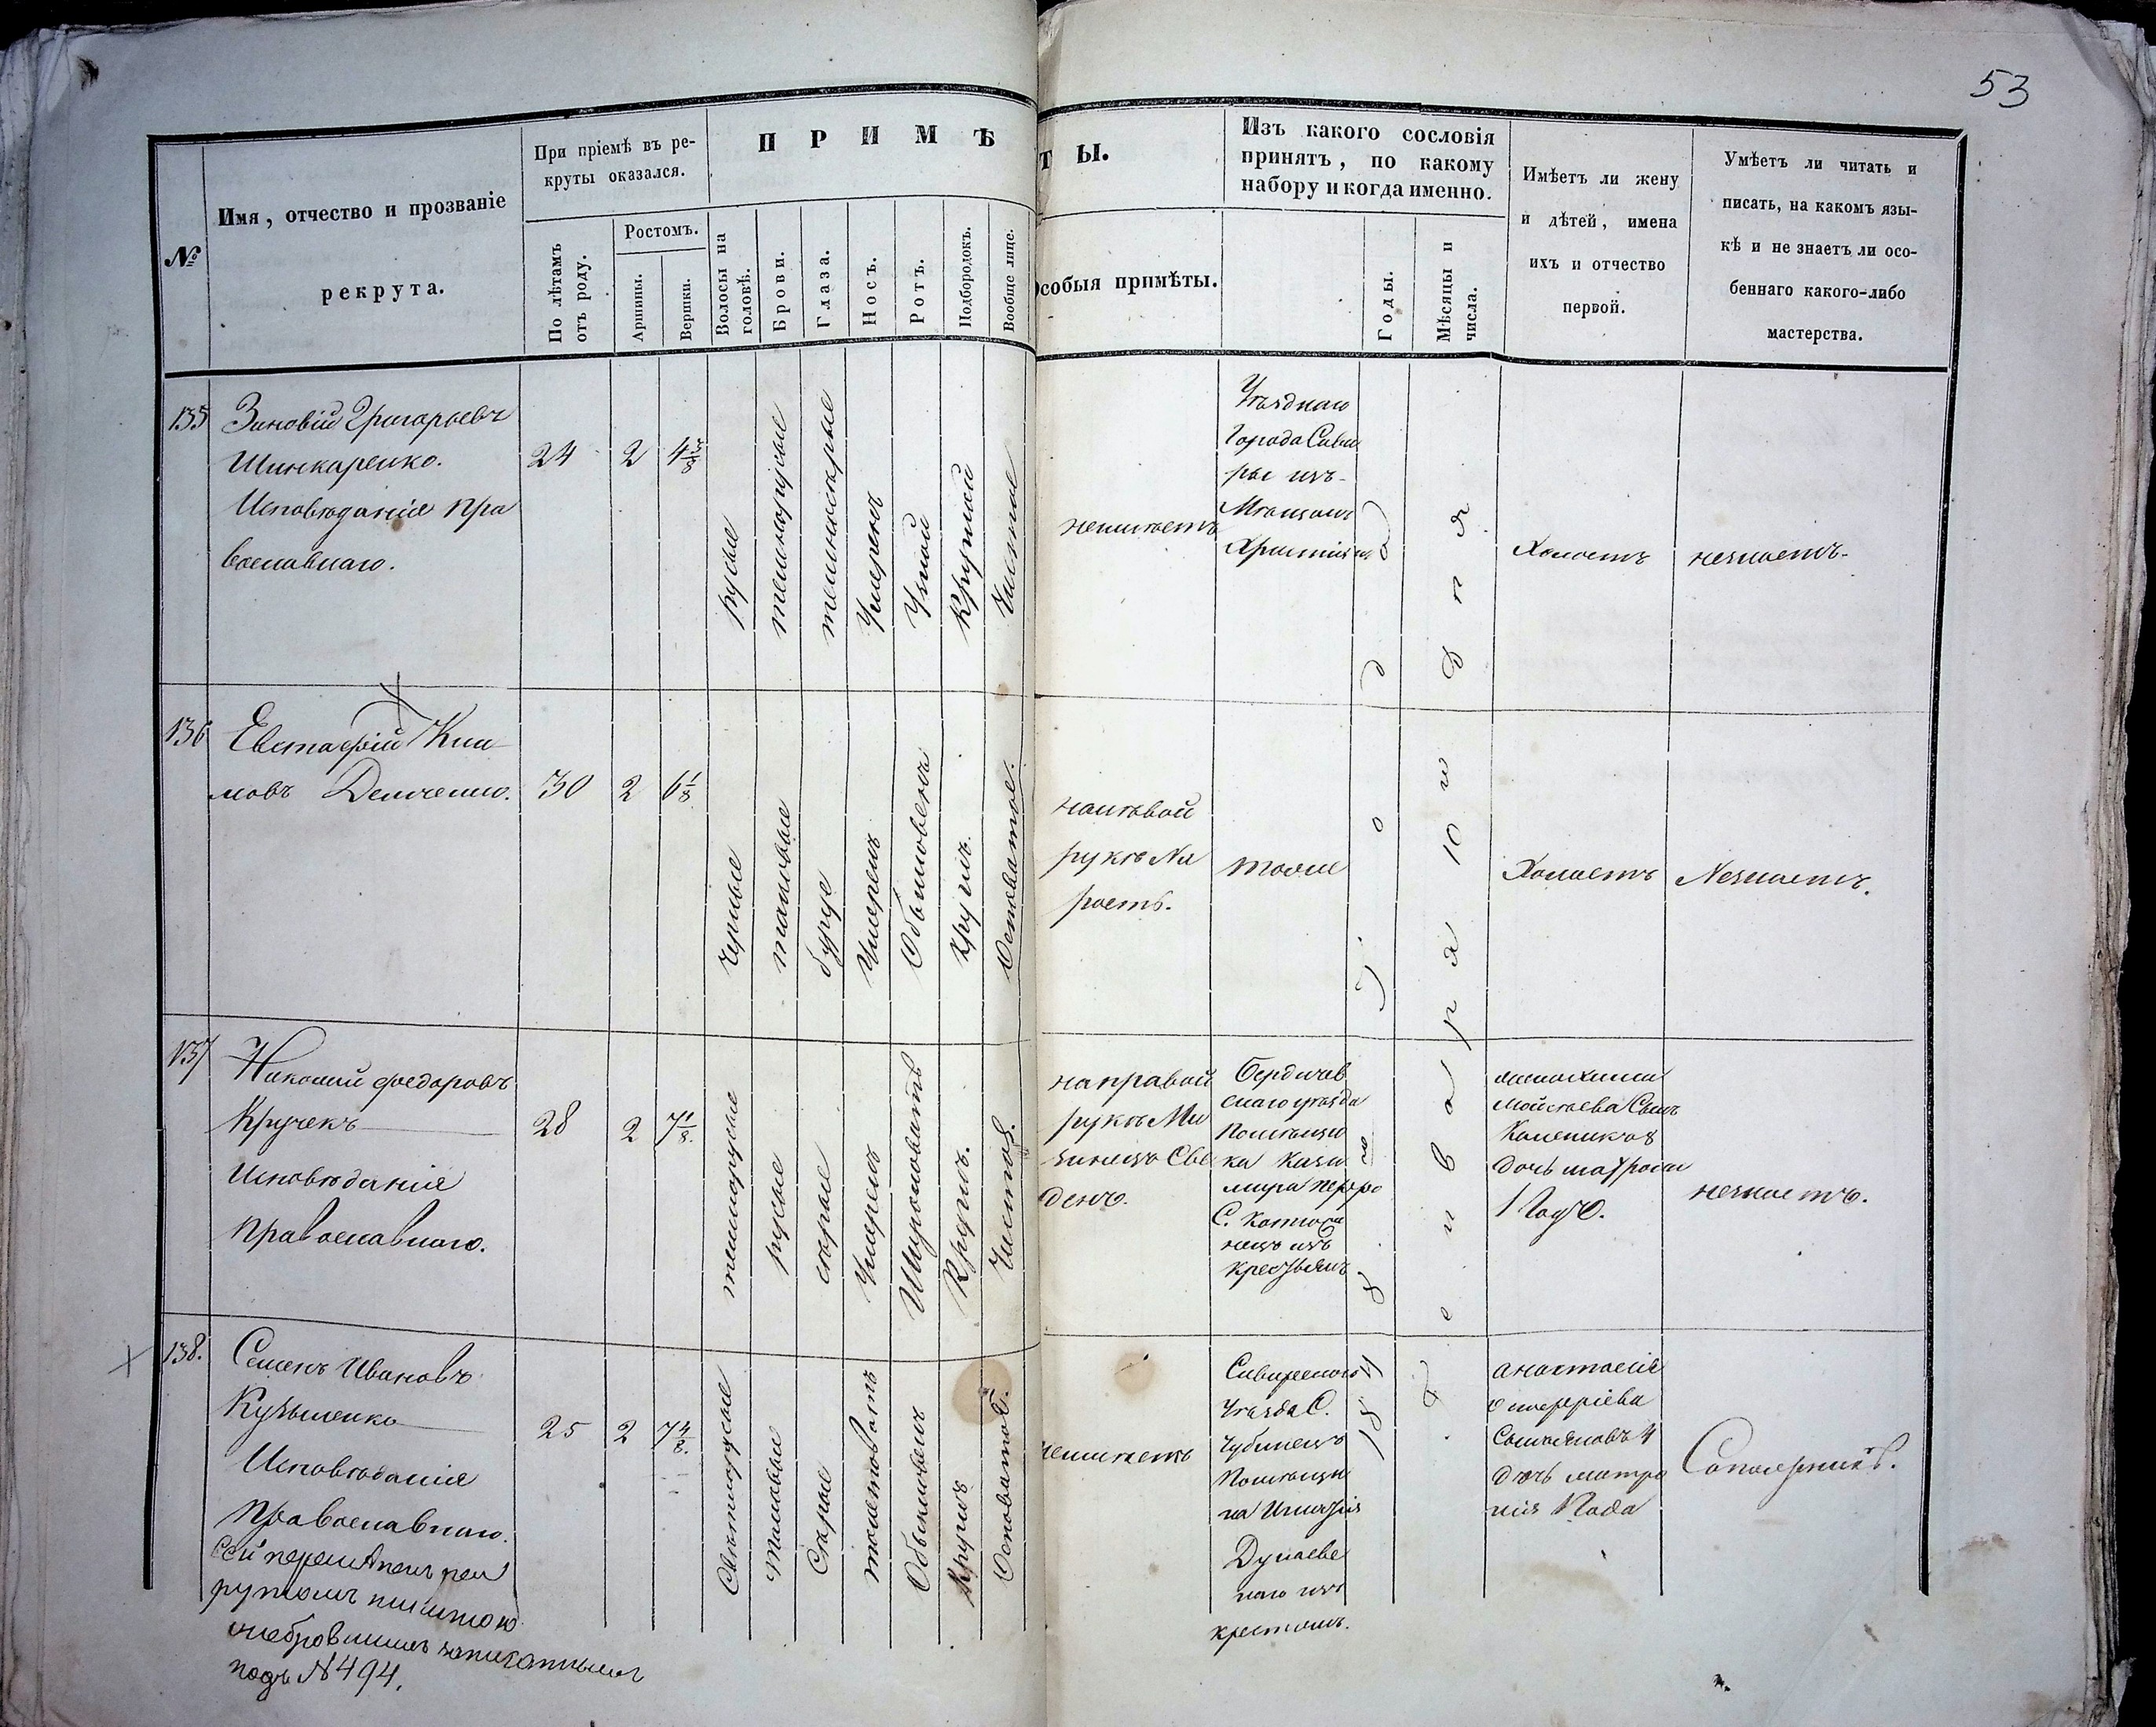 53
№
Имя, отчество и прозваніе
рекрута.
При пріемѣ въ ре-
круты оказался.
По лѣтамъ
отъ роду.
Ростомъ.
Аршины.
Вершки.
ПРИМѢ
ТЫ.
Волосы на
головѣ.
Брови.
Глаза.
Носъ.
Ротъ.
Подбородокъ.
Вообще лице.
Особыя примѣты.
Изъ какого сословія
принятъ, по какому
набору и когда именно.
Годы.
Мѣсяцы и
числа.
Имѣетъ ли жену
и дѣтей, имена
ихъ и отчество
первой.
Умѣетъ ли читать и
писать, на какомъ язы-
кѣ и не знаетъ ли осо-
беннаго какого-либо
мастерства.
135
Зиновій Григорьевъ
Шинкаренко.
Исповѣданія пра
вославнаго.
24
2
4 3/8
русые
темнорусые
темносѣрые
Умѣренъ
Малой
Круглый
Чистое
неимѣетъ
Уѣзднаго
Города Скви
ры изъ
Мѣщанъ
Христіянъ
Холостъ
незнаетъ.
136
Евстафій Кли
мовъ Демченко.
30
2
6 1/8
Черные
таковые
бурые
Умѣренъ
Обыкновенъ
круглъ.
Осповатое.
налѣвой
рукѣ На
ростъ.
тоже
Холостъ
Незнаетъ.
137
Николай Федоровъ
Кручекъ
Исповѣданія
Православнаго.
28
2
7 1/8.
темнорусые
русые
сѣрые
Умѣренъ
Широковатъ
Круглъ.
Чистое.
направой
рукѣ Ми
зинецъ Све
денъ.
Бердичев
скаго уѣзда
Помѣщи
ка Кази
мира
С.
нецъ изъ
крестьянъ
Моисѣева
дочь
1 Году.
незнаетъ.
138.
Семенъ Ивановъ
Кузьменко
Исповѣданія
Православнаго.
Сей перемѣненъ рек
рутомъ
записаннымъ
подъ №494.
25
2
7 4/8.
Свѣтлорусые
таковые
Сѣрые
толстоватъ
Обыкновенъ
Круглъ
Осповатое.
неимѣетъ
Сквирскаго
Уѣзда С.
Чубинецъ
Помѣщи
ка Игнатія
Дунаевс
каго изъ
крестьянъ.
1854 года
Января 10 дня
Анастасія
дочь Матро
на 1 года
Сапожникъ.